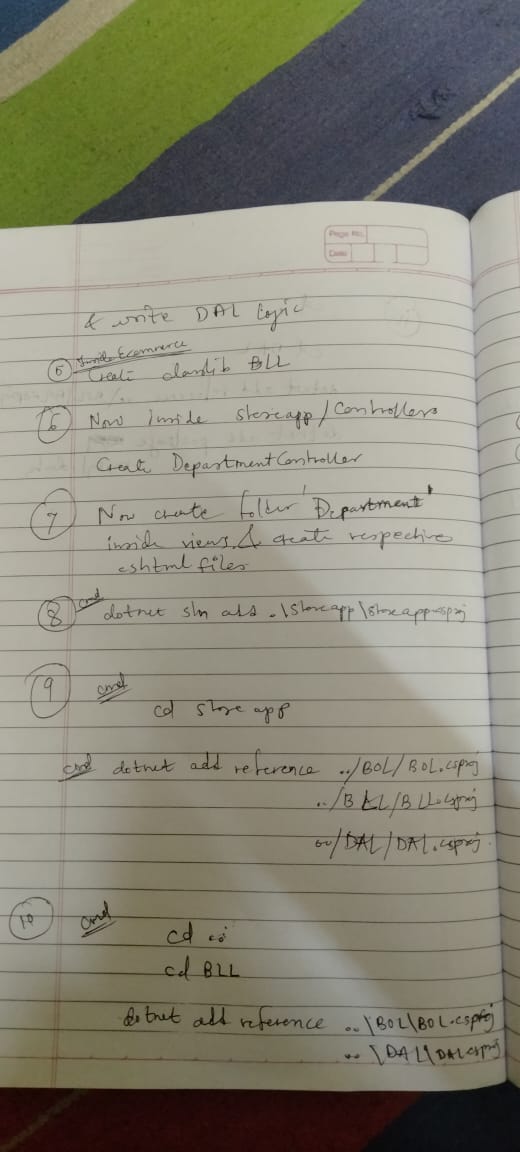 Page No.
Date
& write DAL logic
5 Inside Ecommerce
Create classlib BLL
6 Now inside storeapp/Controllers
Create DepartmentController
7 Now create folder 'Department'
inside views & create respective
cshtml files
8 cmd dotnet sln add .\Storeapp\Storeapp.csproj
9 cmd
cd storeapp
cmd dotnet add reference ../BOL/BOL.csproj
../BLL/BLL.csproj
../DAL/DAL.csproj
10 cmd
cd ..
cd BLL
dotnet add reference ..\BOL\BOL.csproj
..\DAL\DAL.csproj